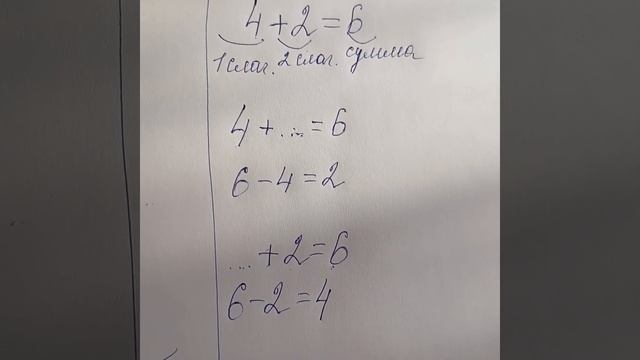 4 + 2 = 6
1 слаг. 2 слаг. сумма
4 + ... = 6
6 - 4 = 2
.... + 2 = 6
6 - 2 = 4